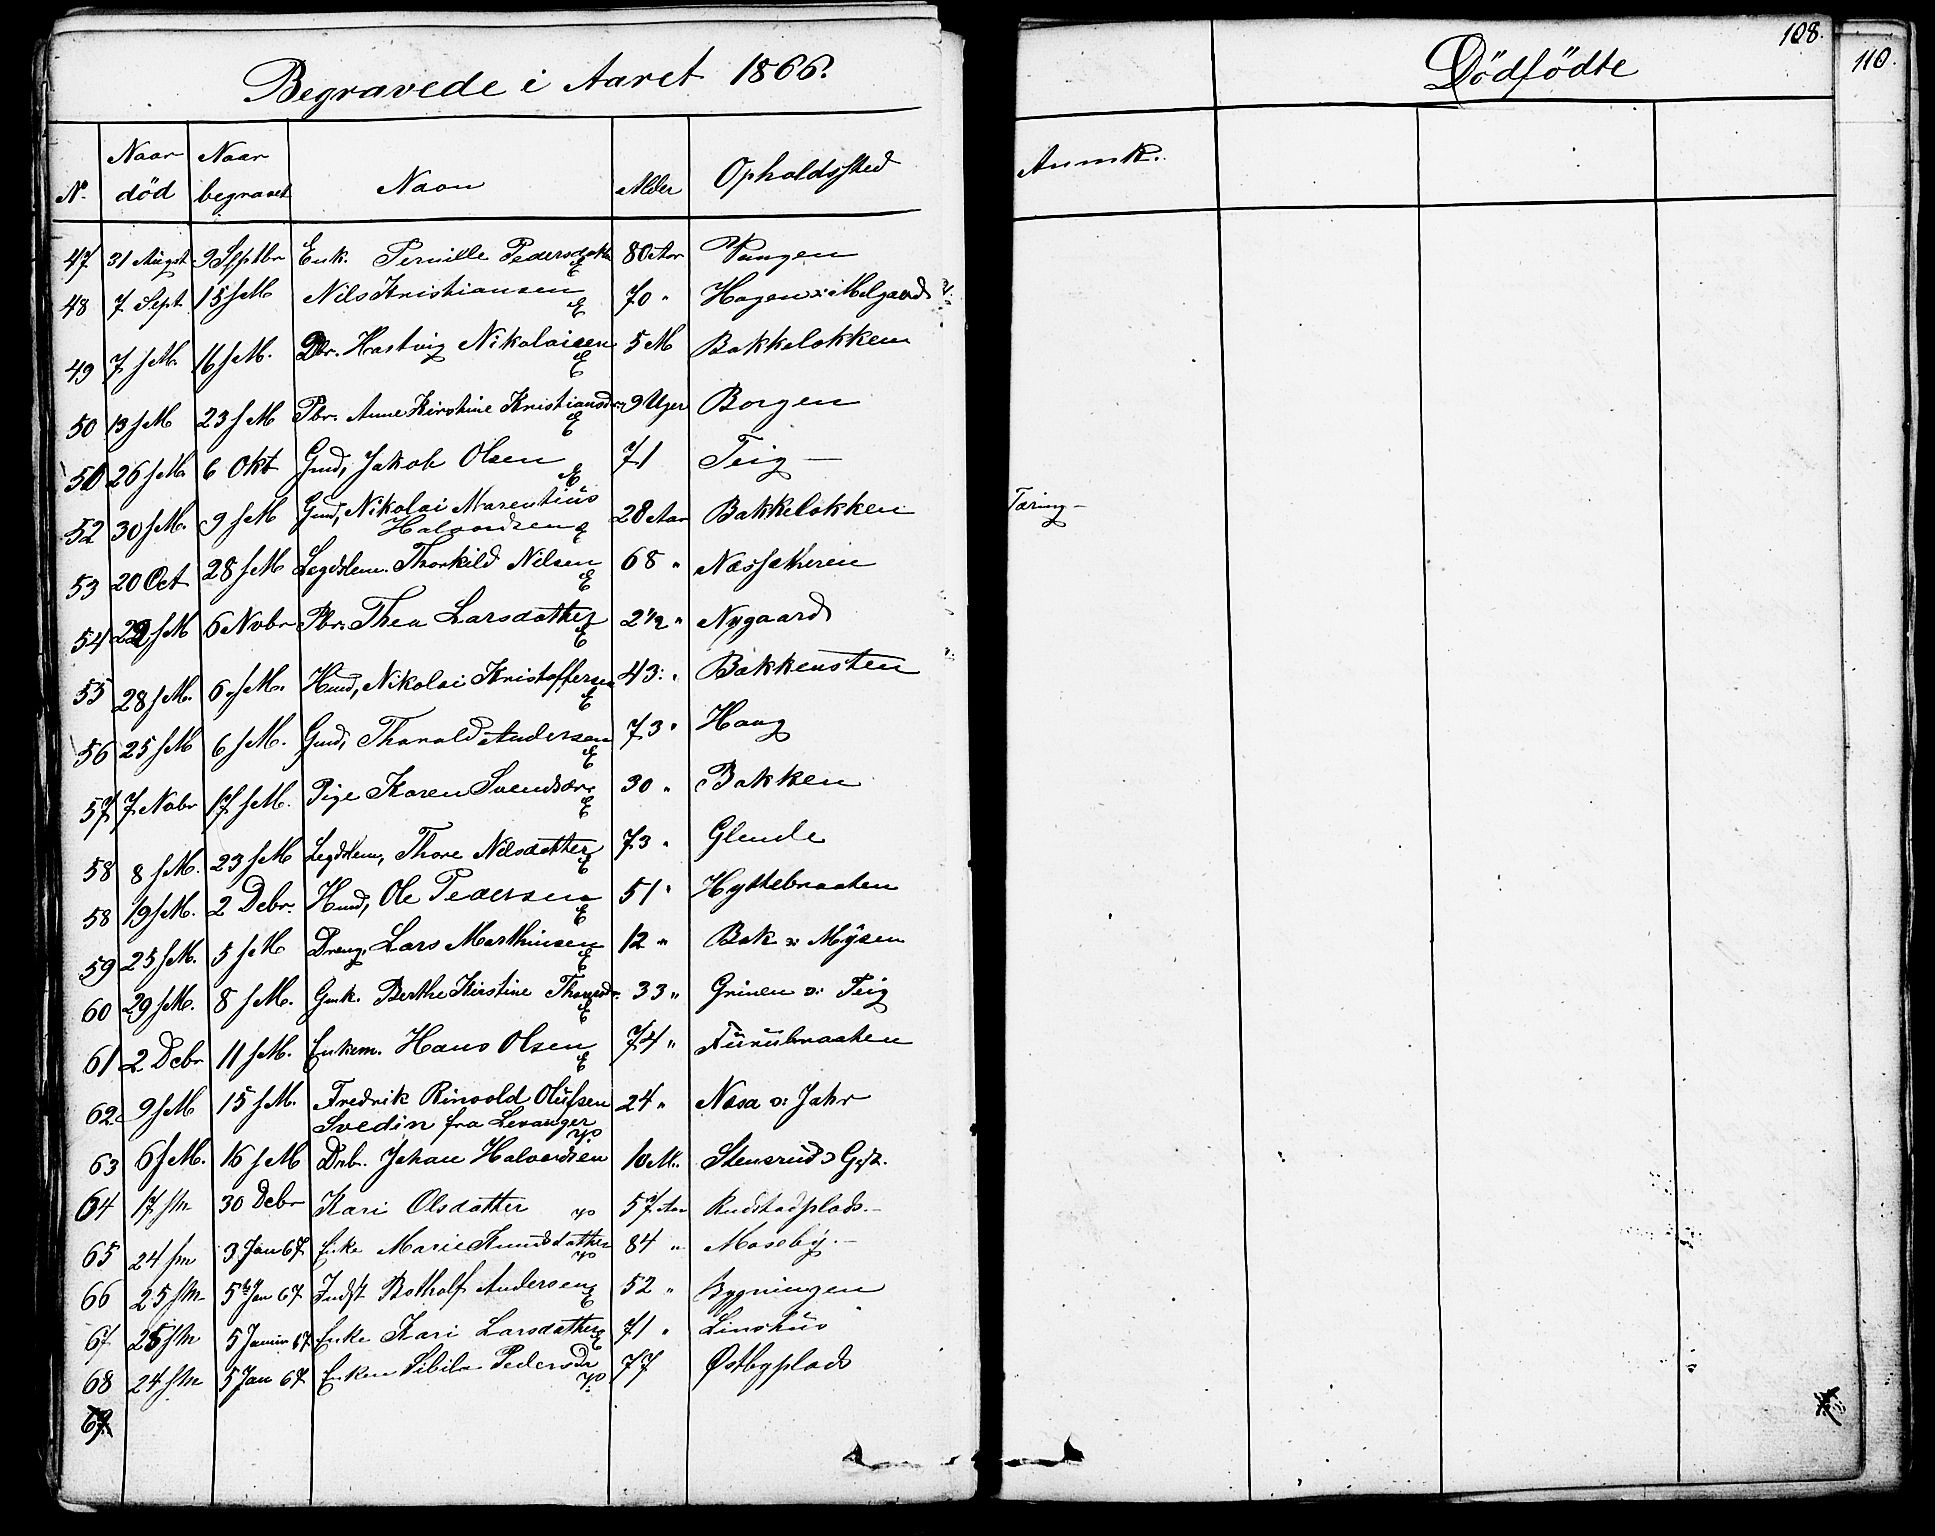 Begravede i Aaret 1866.
Dödfödte
108.
110.
No. Naar död Naar begravet Navn Alder Opholdssted Anmk.
47 31 August 9 Septbr Enk. Pernille Pedersdatt E 80 Aar Vangen
48 7 Sept 15 s M Nils Kristiansen E 70 " Hagen v: Melgaard
49 7 s M. 16 s M. Dbr. Hartvig Nikolaisen E 5 M Bakkeløkken
50 13 s M 23 s M Pbr. Anne Kirstine Kristiansdr. E 9 Uger Borgen
51 26 s M. 6 Okt Gmd, Jakob Olsen E 71 Teig —
52 30 s M. 9 s M Gmd, Nikolai Marentius
Halvordsen E 28 Aar Bakkeløkken Tæring —
53 20 Oct 28 s M Legdslem. Thorkild Nilsen E 68 " Næssækeren
54 22 s M 6 Nobr Pbr. Thea Larsdatter E 2 1/2 " Nygaard
55 28 s M. 6 s M. Hmd, Nikolai Kristoffersen E 43 " Bakkensten
56 25 s M 6 s M. Gmd, Tharald Andersen E 73 " Haug
57 7 Nobr 17 s M. Pige Karen Svendsdr. E 30 " Bakken
58 8 s M. 23 s M Legdslem, Thore Nilsdatter E 73 " Glende
58 19 s M. 2 Debr. Hmd, Ole Pedersen E 51 " Hyttebraaten
59 25 s M. 5 s M Dreng, Lars Marthinsen E 12 " Bak v: Mysen
60 29 s M. 8 s M. Gmk. Berthe Kirstine Thoresdr. E 33 " Grinen v: Teig
61 2 Debr 11 s M. Enkem. Hans Olsen E 74 " Furubraaten
62 9 s M 15 s M. Fredrik Rinvold Olufsen
Svedin fra Levanger 24 " Næsa v: Jahr
63 6 s M. 16 s M Drb. Johan Halvordsen 10 M. Stensrud
64 17 s m 30 Debr Kari Olsdatter 57 Aar Rudstadplads. —
65 24 s m 3 Jan 67 Enke Marie Knudsdatter 84 " Moseby. —
66 25 s m 5 Jan 67 Indst Botholf Andersen E 52 " Bygningen
67 25 s m 5 Januar 67 Enke Kari Larsdatter E 71 " Linshus
68 24 s m 5 Jan 67 Enken Sibila Pedersdr 77 Østbyplads
69